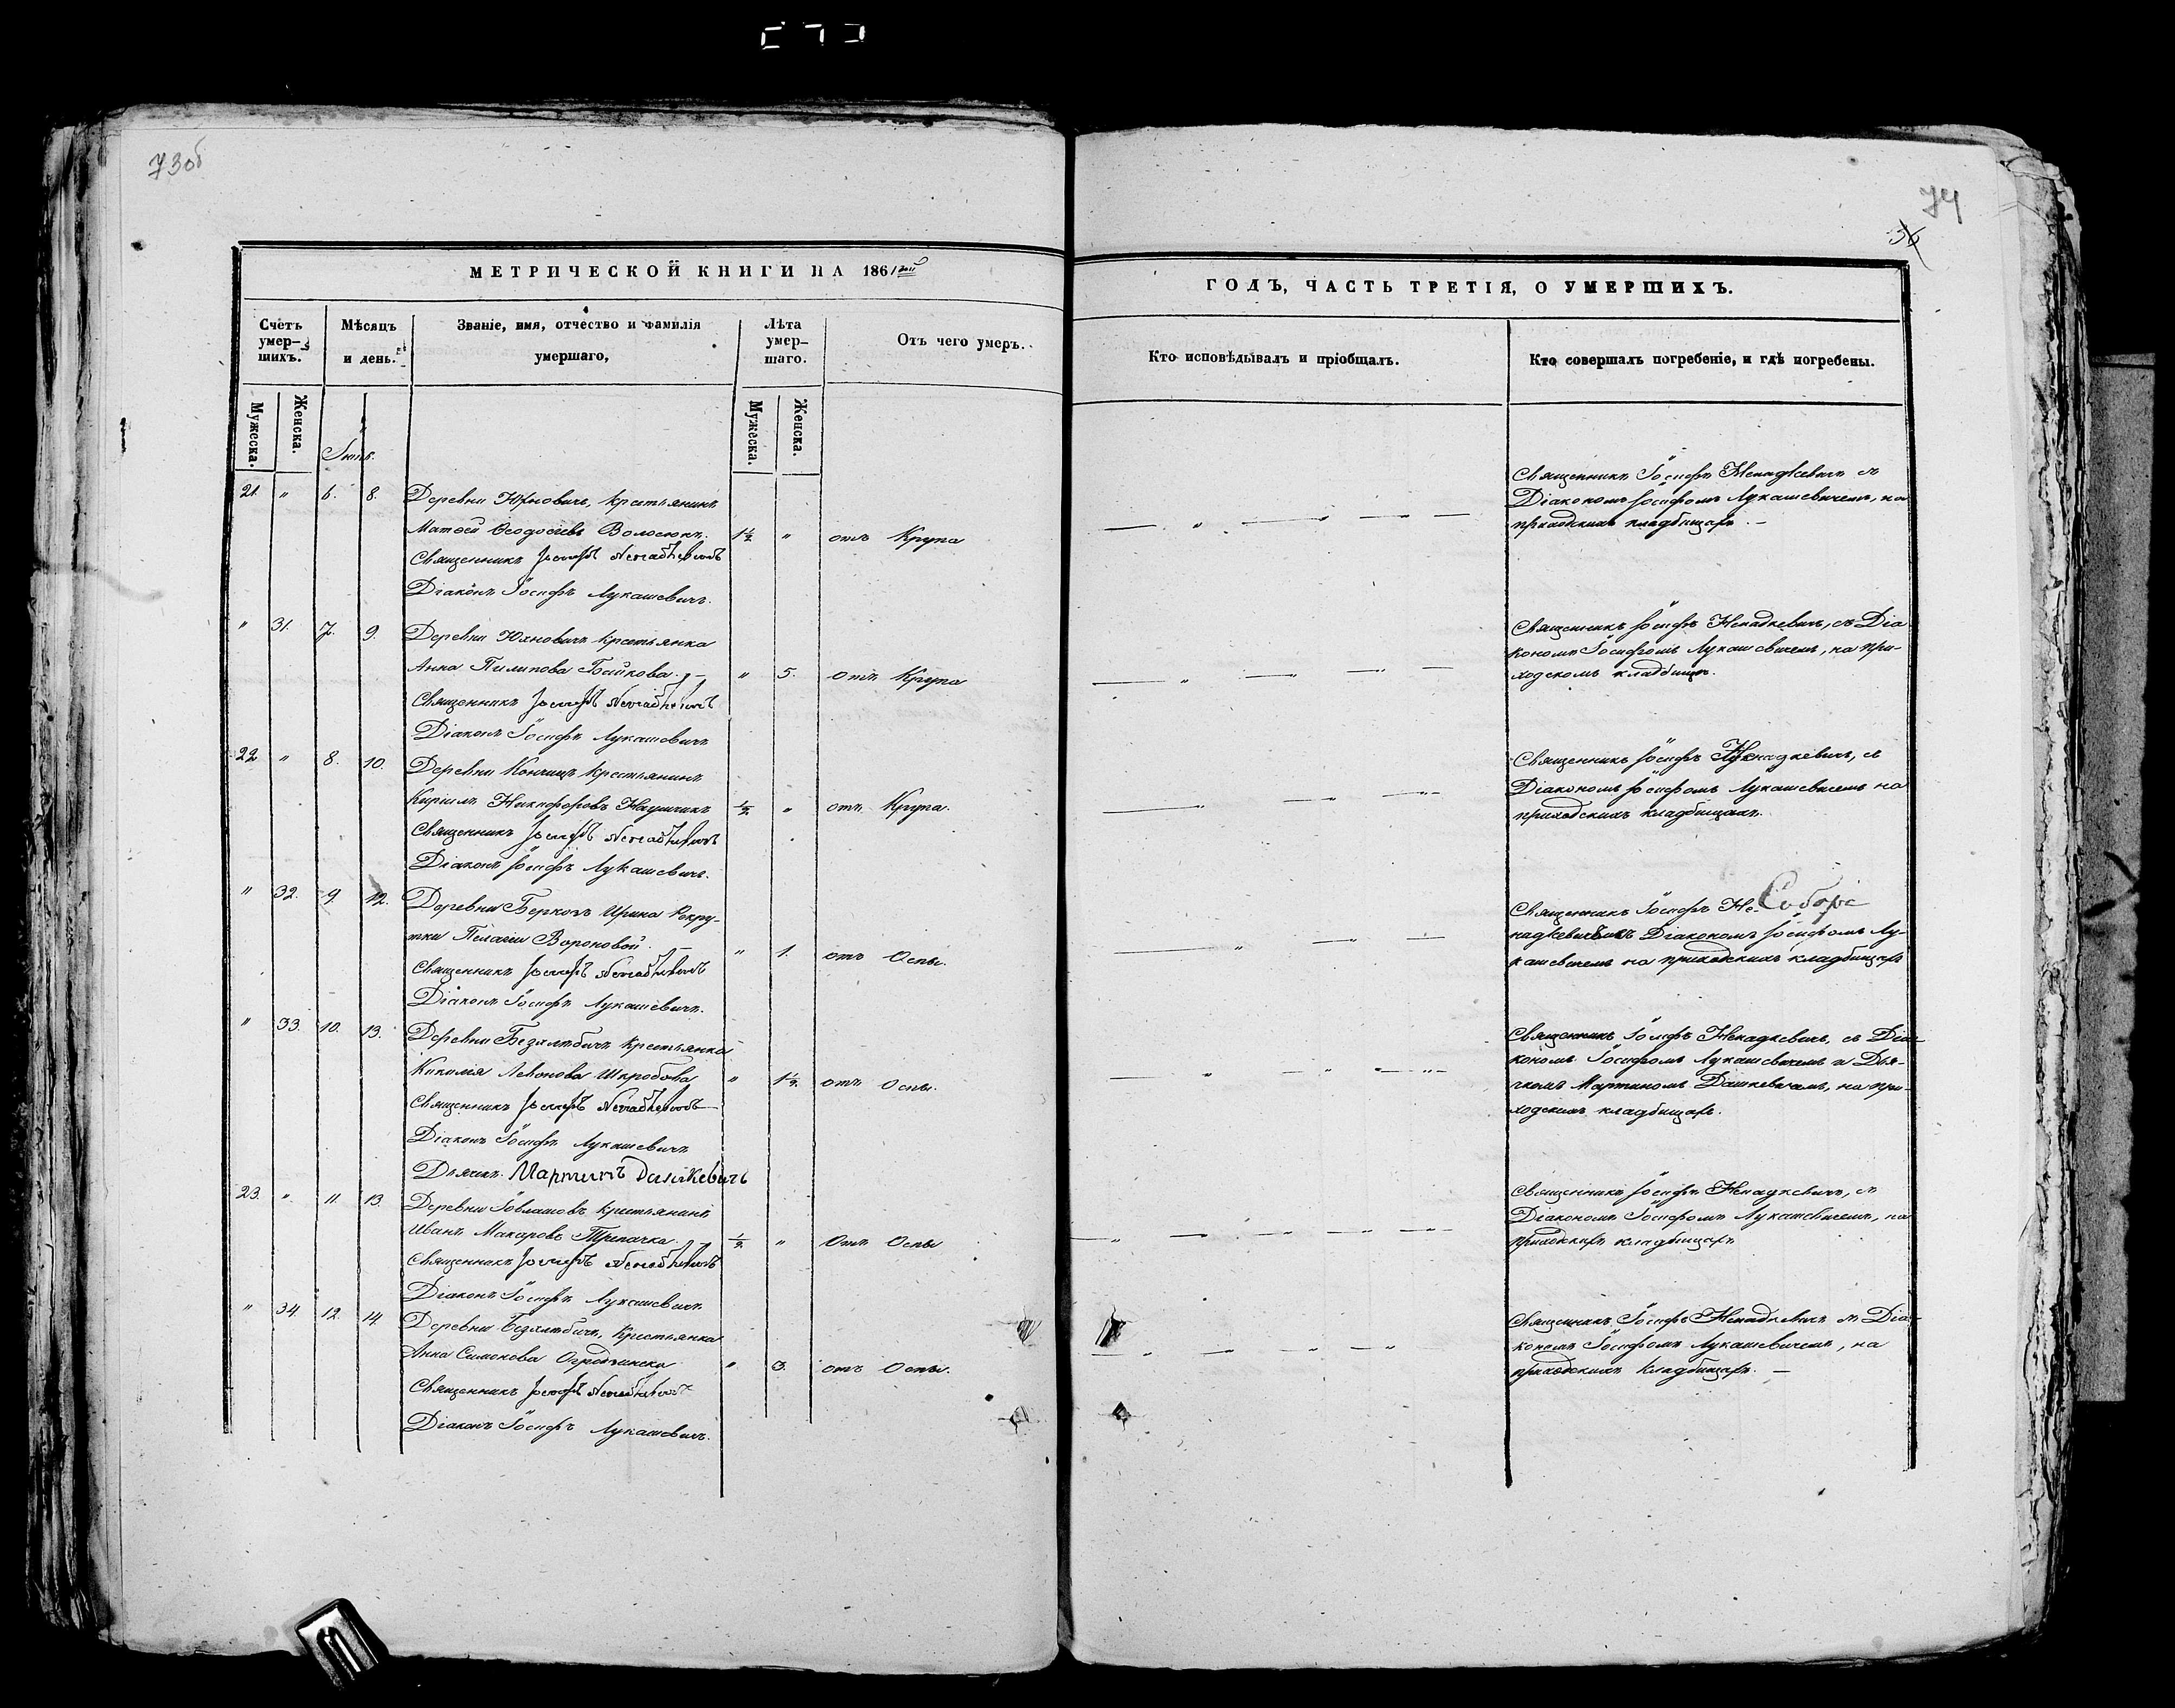 73об
74
36
МЕТРИЧЕСКОЙ КНИГИ НА 1861й
ГОДЪ, ЧАСТЬ ТРЕТІЯ, О УМЕРШИХЪ.
Счетъ умер-шихъ.
Мѣсяцъ и день.
Званіе, имя, отчество и фамилія умершаго,
Лѣта умер-шаго.
Отъ чего умеръ.
Кто исповѣдывалъ и пріобщалъ.
Кто совершалъ погребеніе, и гдѣ погребены.
Мужеска.
Женска.
Мужеска.
Женска.
21. " 6. 8. Деревни Юхновичъ, крестьянинъ
Матѳей Ѳеодосіевъ Волосюкъ. 1½ " отъ Крупа
Священникъ Іосифъ Ненадкевичъ
Діаконъ Іосифъ Лукашевичъ.
Священникъ Іосифъ Ненадкевичъ съ
Діакономъ Іосифомъ Лукашевичемъ, на
приходскихъ кладбищахъ. —
" 31. 7. 9. Деревни Юхновичъ крестьянка
Анна Пилипова Бойкова. " 5. отъ Крупа
Священникъ Іосифъ Ненадкевичъ
Діаконъ Іосифъ Лукашевичъ
Священникъ Іосифъ Ненадкевичъ, съ Діа-
кономъ Іосифомъ Лукашевичемъ, на при-
ходскомъ кладбищѣ.
22 " 8. 10. Деревни Кончицъ крестьянинъ
Кириллъ Никифоровъ ½ " отъ Крупа.
Священникъ Іосифъ Ненадкевичъ
Діаконъ Іосифъ Лукашевичъ.
Священникъ Іосифъ Ненадкевичъ, съ
Діакономъ Іосифомъ Лукашевичемъ на
приходскихъ кладбищахъ.
" 32. 9. 12. Деревни Беркозъ Ирина Рекру-
тки Пелагіи Вороновой. " 1. отъ Оспы.
Священникъ Іосифъ Ненадкевичъ
Діаконъ Іосифъ Лукашевичъ.
Священникъ Іосифъ Не-
надкевичъ съ Діакономъ Іосифомъ Лу-
кашевичемъ на приходскихъ кладбищахъ
" 33. 10. 13. Деревни Беззлѣбичъ крестьянка
Кикилія Левонова Шкробова " 1½. отъ Оспы.
Священникъ Іосифъ Ненадкевичъ
Діаконъ Іосифъ Лукашевичъ
Дьячекъ Мартинъ Дашкевичъ
Священникъ Іосифъ Ненадкевичъ, съ Діа-
кономъ Іосифомъ Лукашевичемъ и Дья-
чкомъ Мартиномъ Дашкевичемъ, на при-
ходскихъ кладбищахъ.
23. " 11 13. Деревни крестьянинъ
Иванъ Макаровъ Трепачка. ½ " Отъ Оспы
Священникъ Іосифъ Ненадкевичъ
Діаконъ Іосифъ Лукашевичъ
Священникъ Іосифъ Ненадкевичъ, съ
Діакономъ Іосифомъ Лукашевичемъ, на
приходскихъ кладбищахъ
" 34. 12. 14. Деревни Беззлѣбичъ, Крестьянка
Анна Симонова " 3. отъ Оспы.
Священникъ Іосифъ Ненадкевичъ
Діаконъ Іосифъ Лукашевичъ.
Священникъ Іосифъ Ненадкевичъ съ Діа-
кономъ Іосифомъ Лукашевичемъ, на
приходскихъ кладбищахъ. —